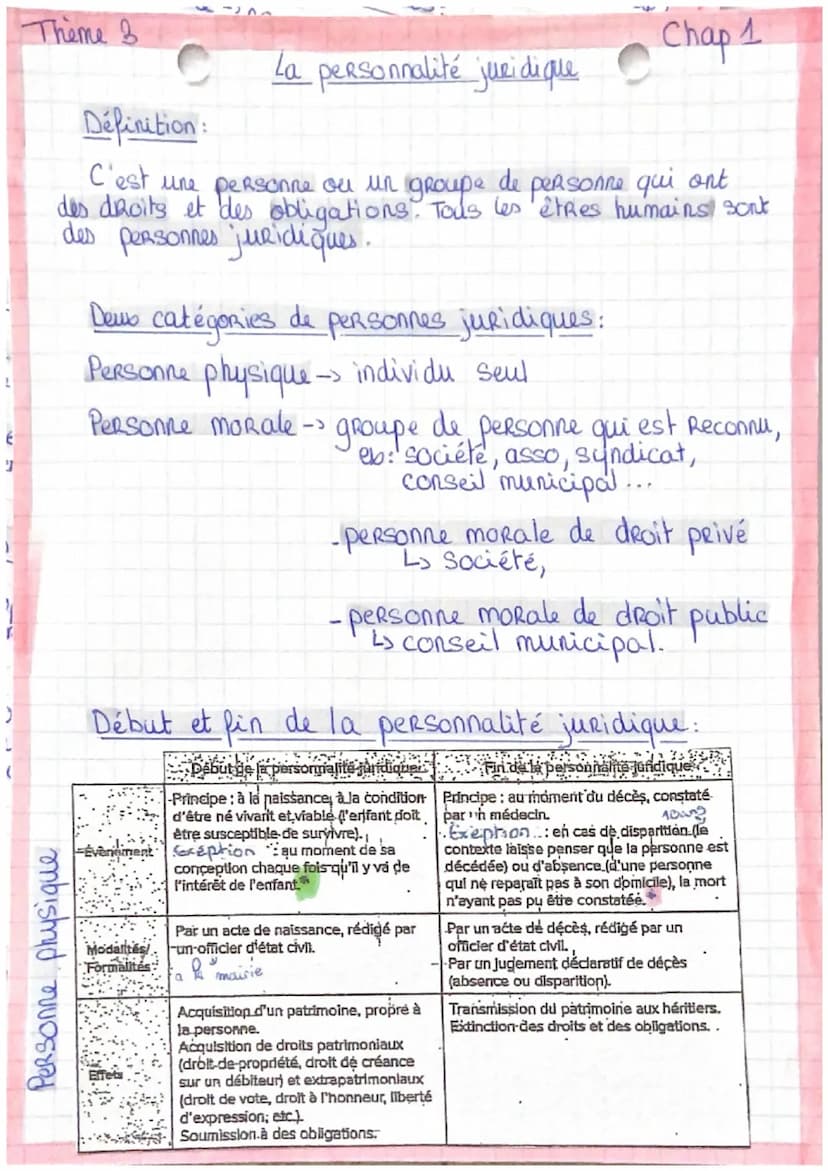 Thème 3
Chap 1
La personnalité juridique
Définition :
C'est une personne ou un groupe de personne qui ont
des droits et des obligations. Tous les êtres humains sont
des personnes juridiques.
Deux catégories de personnes juridiques :
Personne physique -> individu seul
Personne morale -> groupe de personne qui est reconnu,
ex: société, asso, syndicat,
conseil municipal ...
- personne morale de droit privé
↳ société,
- personne morale de droit public
↳ conseil municipal.
Début et fin de la personnalité juridique :
Personne physique
Début de la personnalité juridique
Fin de la personnalité juridique
Évènement
Principe : à la naissance, à la condition
d'être né vivant et viable (l'enfant doit
être susceptible de survivre).
Exéption : au moment de sa
conception chaque fois qu'il y va de
l'intérêt de l'enfant.*
Principe : au moment du décès, constaté
par un médecin.
10ans
Exéption : en cas de disparition (le
contexte laisse penser que la personne est
décédée) ou d'absence (d'une personne
qui ne reparaît pas à son domicile), la mort
n'ayant pas pu être constatée.*
Modalités/
Formalités
Par un acte de naissance, rédigé par
un officier d'état civil.
à la mairie
Par un acte de décès, rédigé par un
officier d'état civil.
Par un jugement déclaratif de décès
(absence ou disparition).
Effets
Acquisition d'un patrimoine, propre à
la personne.
Acquisition de droits patrimoniaux
(droit de propriété, droit de créance
sur un débiteur) et extrapatrimoniaux
(droit de vote, droit à l'honneur, liberté
d'expression, etc.).
Soumission à des obligations.
Transmission du patrimoine aux héritiers.
Extinction des droits et des obligations.